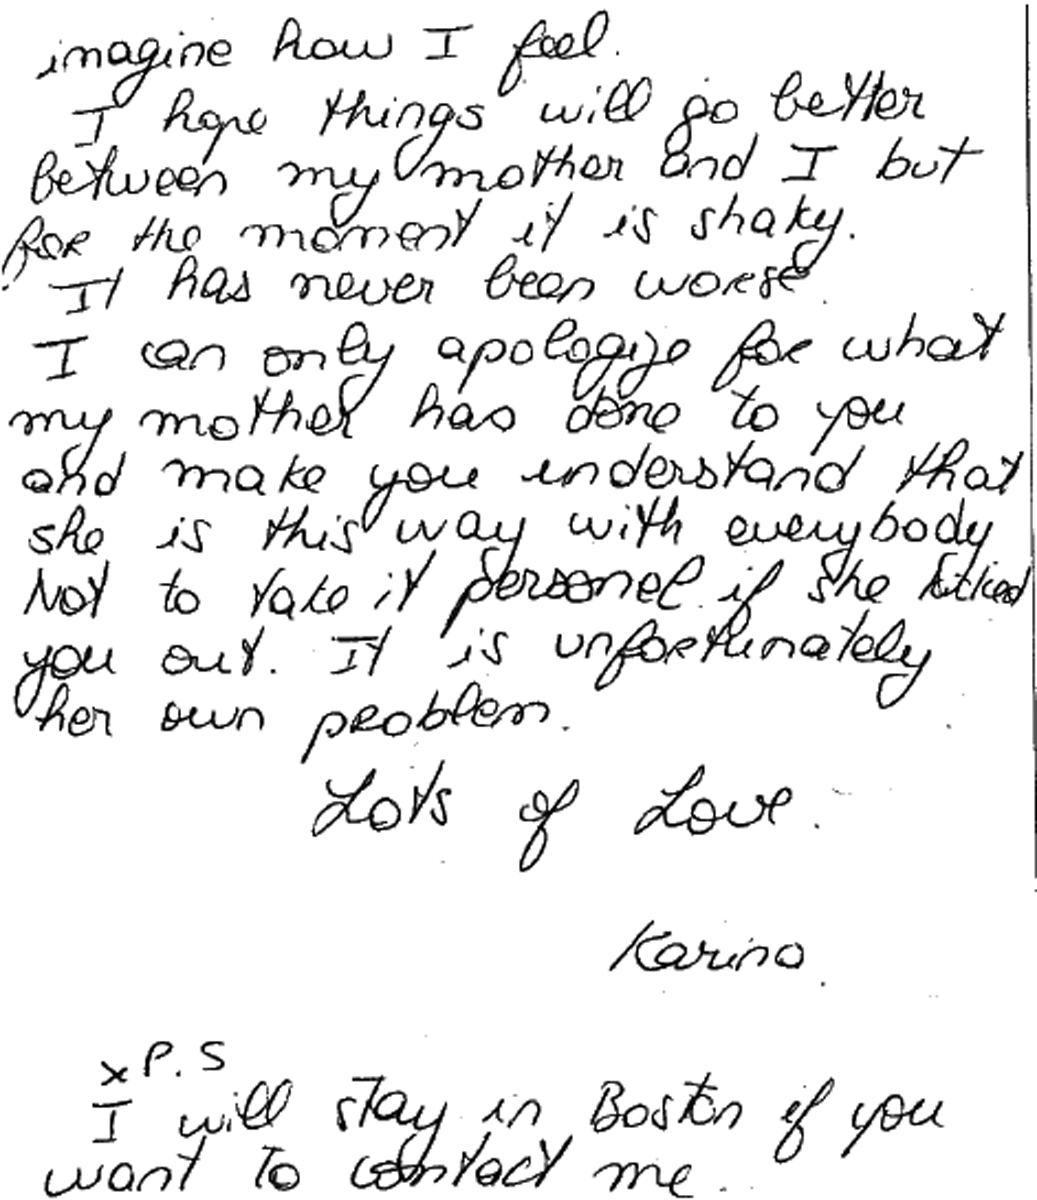 imagine how I feel.
I hope things will go better
between my mother and I but
for the moment it is shaky.
It has never been worse.
I can only apologize for what
my mother has done to you
and make you understand that
she is this way with everybody
Not to take it personel if she kicked
you out. It is unfortunately
her own problem.
Lots of Love.
Karina.
x P.S
I will stay in Boston if you
want to contact me.